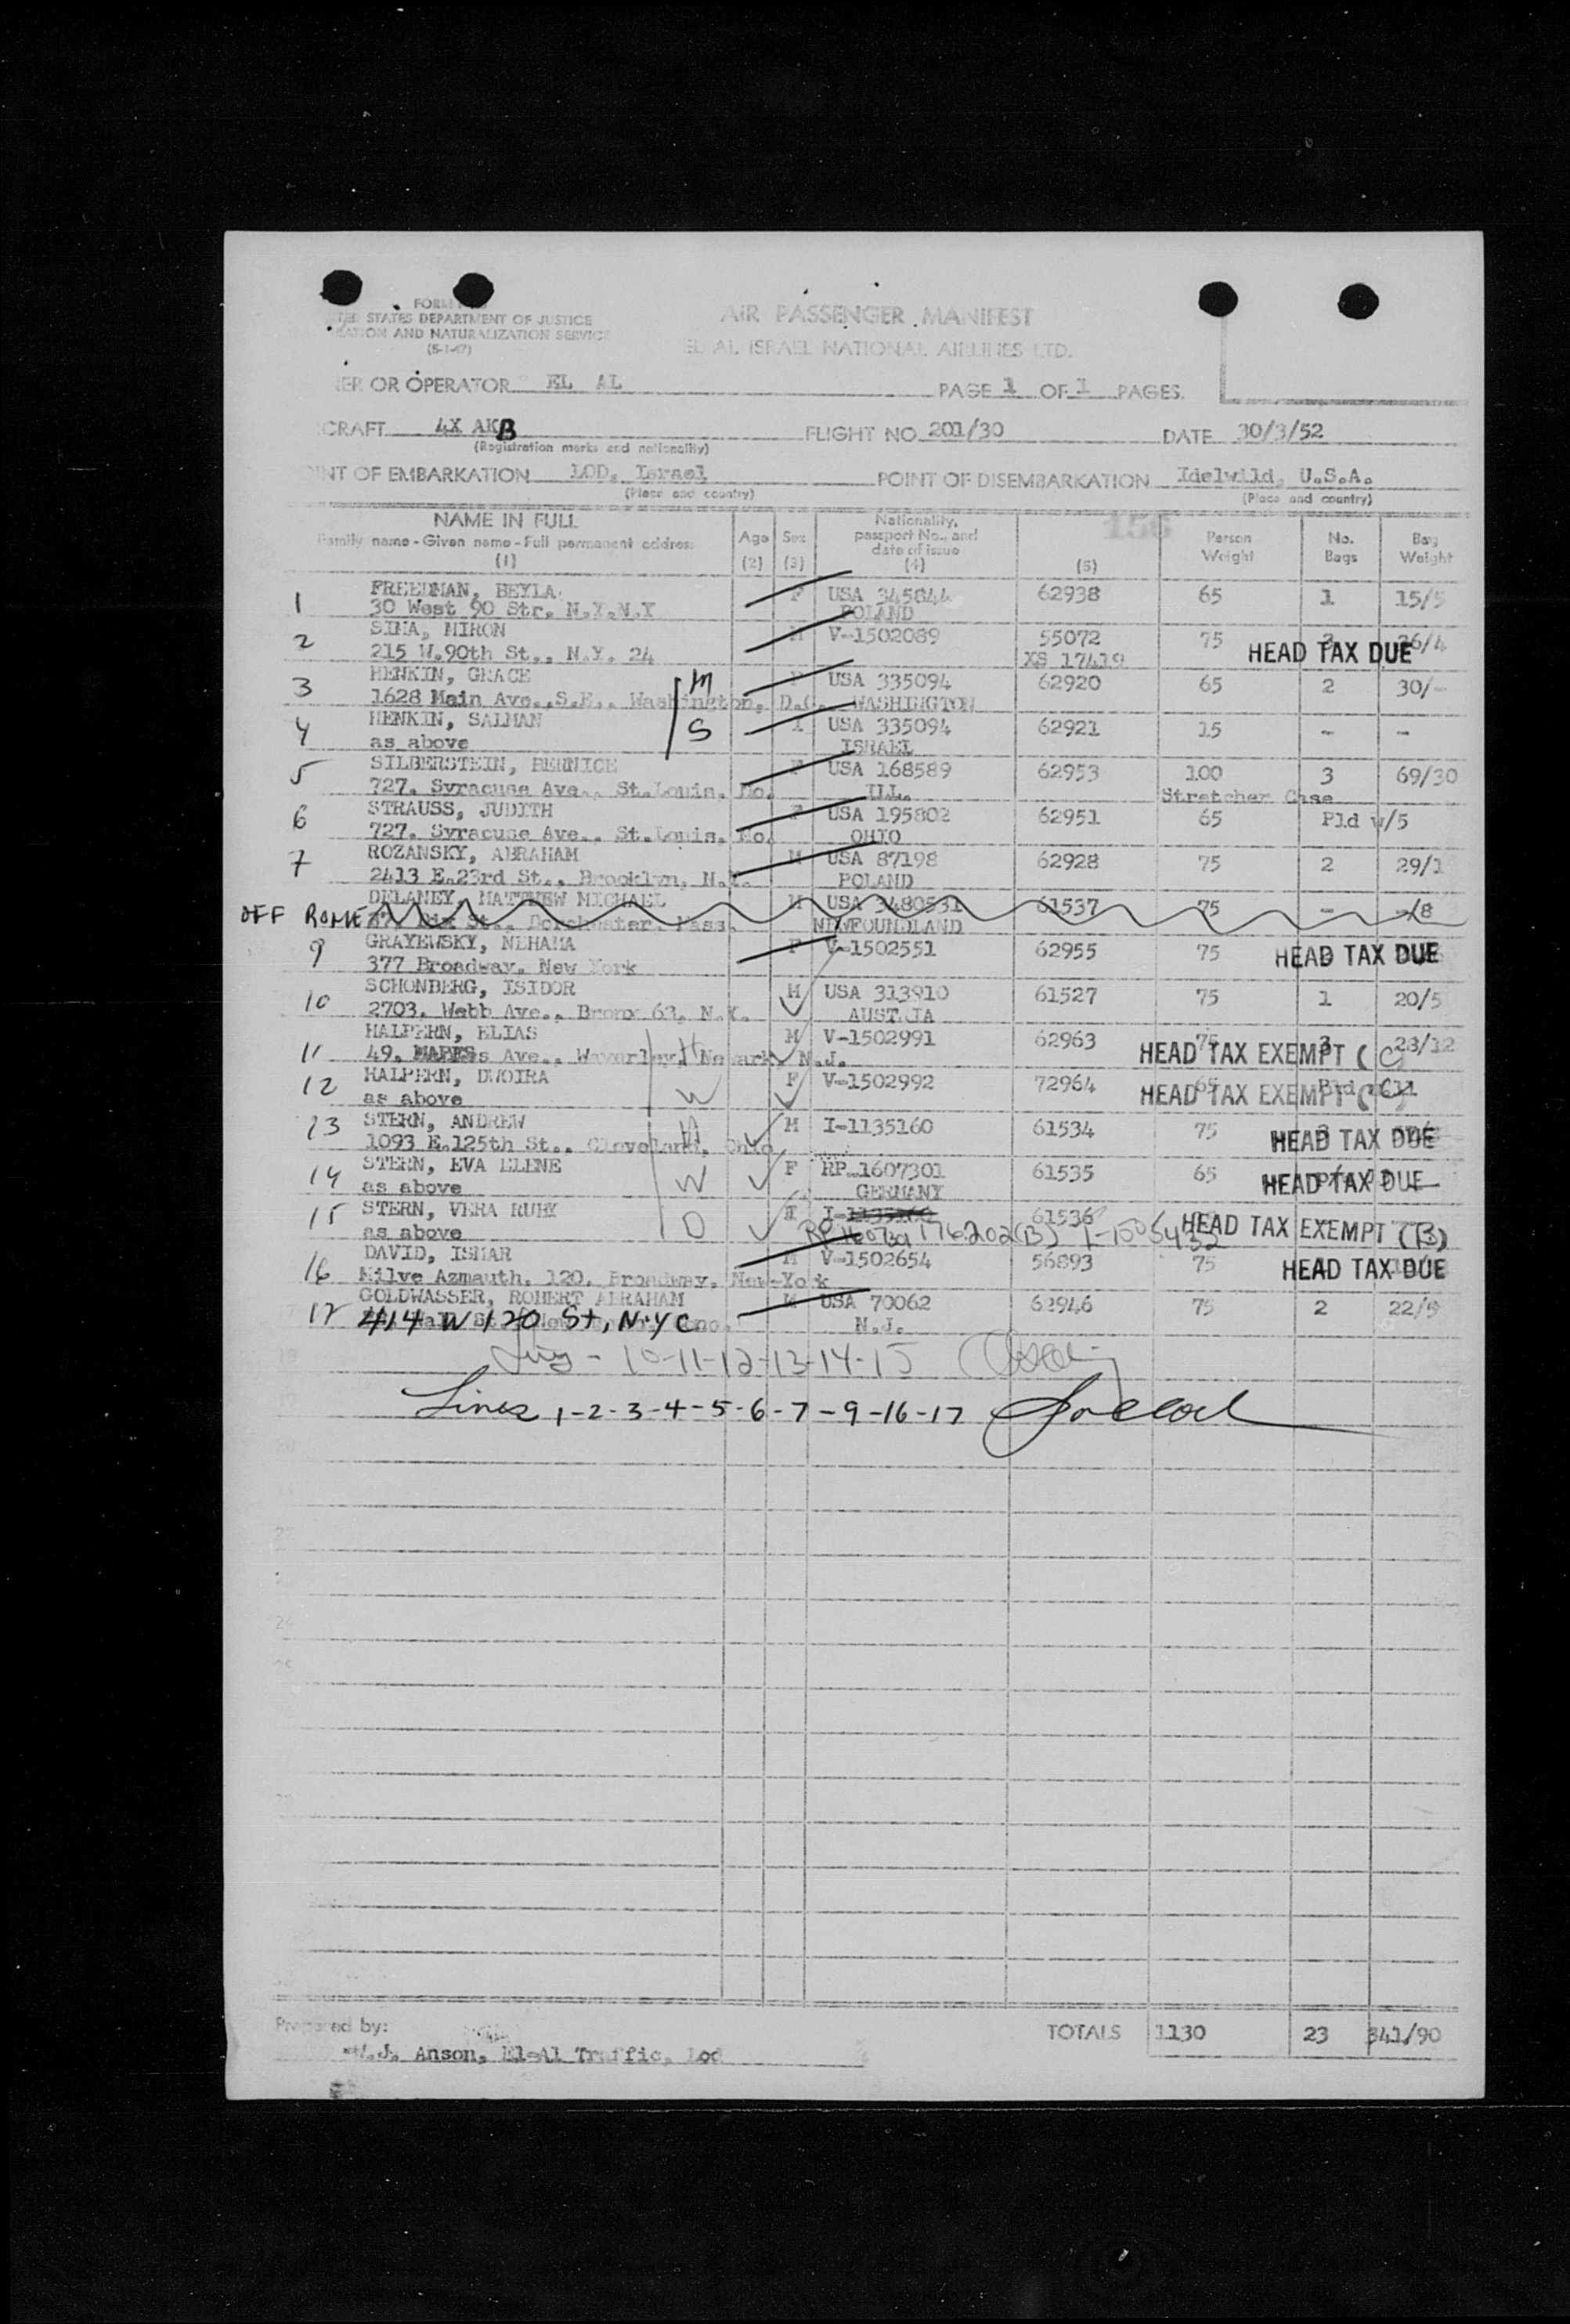 FORM
STATES DEPARTMENT OF JUSTICE
AND NATURALIZATION SERVICE
(5-1-47)
AIR PASSENGER MANIFEST
EL AL ISRAEL NATIONAL AIRLINES LTD.
OR OPERATOR EL AL PAGE 1 OF 1 PAGES
CRAFT 4X AKB FLIGHT NO. 201/30 DATE 30/3/52
(Registration marks and nationality)
NT OF EMBARKATION LOD, Israel POINT OF DISEMBARKATION Idelwild, U.S.A.
(Place and country) (Place and country)
156
NAME IN FULL
Family name - Given name - Full permanent address
(1)
Age
(2)
Sex
(3)
Nationality,
passport No., and
date of issue
(4)
(5)
Person
Weight
No.
Bags
Bag
Weight
1 FREEDMAN, BEYLA F USA 345844 62938 65 1 15/5
30 West 90 Str. N.Y.N.Y POLAND
2 SIMA, MIRON M V-1502089 55072 75 HEAD TAX DUE 26/4
215 W.90th St., N.Y. 24 XS 17419
3 HENKIN, GRACE M F USA 335094 62920 65 2 30/-
1628 Main Ave.,S.E., Washington, D.C. WASHINGTON
4 HENKIN, SALMAN S USA 335094 62921 15 - -
as above ISRAEL
5 SILBERSTEIN, BERNICE F USA 168589 62953 100 3 69/30
727. Syracuse Ave., St.Louis, Mo. ILL. Stretcher Case
6 STRAUSS, JUDITH F USA 195802 62951 65 Pld w/5
727. Syracuse Ave., St.Louis, Mo. OHIO
7 ROZANSKY, ABRAHAM M USA 87198 62928 75 2 29/1
2413 E.23rd St., Brooklyn, N.Y. POLAND
DELANEY, MATTHEW MICHAEL M USA 3480531 61537 75 - -/8
OFF ROME St., Dorchester, Mass. NEWFOUNDLAND
9 GRAYEWSKY, NEHAMA F V-1502551 62955 75 HEAD TAX DUE
377 Broadway, New York
10 SCHONBERG, ISIDOR M USA 313910 61527 75 1 20/5
2703. Webb Ave., Bronx 63, N.Y. AUSTRIA
11 HALPERN, ELIAS H M V-1502991 62963 75 3 23/12
49. Ave., Waverley, Newark, N.J. HEAD TAX EXEMPT (C)
12 HALPERN, DWOIRA W F V-1502992 72964 65 Pld
as above HEAD TAX EXEMPT (C)
13 STERN, ANDREW H M I-1135160 61534 75 HEAD TAX DUE
1093 E.125th St., Cleveland, Ohio
14 STERN, EVA ELENE W F RP 1607301 61535 65 HEAD TAX DUE
as above GERMANY
15 STERN, VERA RUBY D 61536 HEAD TAX EXEMPT (B)
as above 176.202(B)
16 DAVID, ISMAR M V-1502654 56893 75 HEAD TAX DUE
Milve Azmauth, 120, Broadway, New-York
17 GOLDWASSER, ROBERT ABRAHAM M USA 70062 62946 75 2 22/5
414 W 120 St, NYC N.J.
10-11-12-13-14-15
Lines 1-2-3-4-5-6-7-9-16-17
Prepared by:
J. Anson, El-Al Traffic, Lod
TOTALS 1130 23 341/90